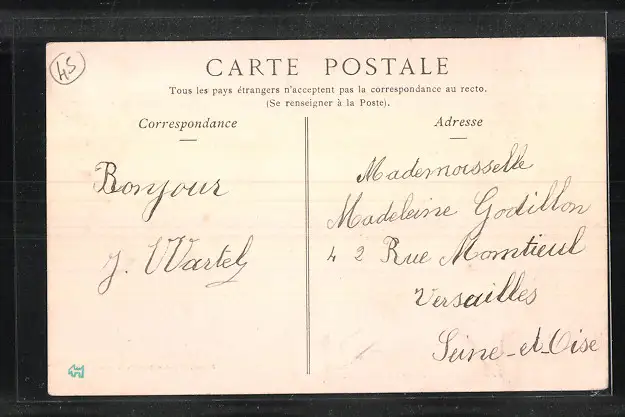 45
CARTE POSTALE
Tous les pays étrangers n'acceptent pas la correspondance au recto.
(Se renseigner à la Poste).
Correspondance
Bonjour
J. Wartel
Adresse
Mademoisselle
Madeleine Godillon
42 Rue Montieul
Versailles
Seine-et-Oise